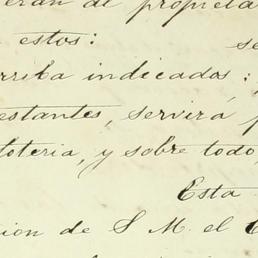 eran de propieta
estos: se
rriba indicados:
estantes, servirá p
loteria, y sobre todo,
Esta
cion de S M. el